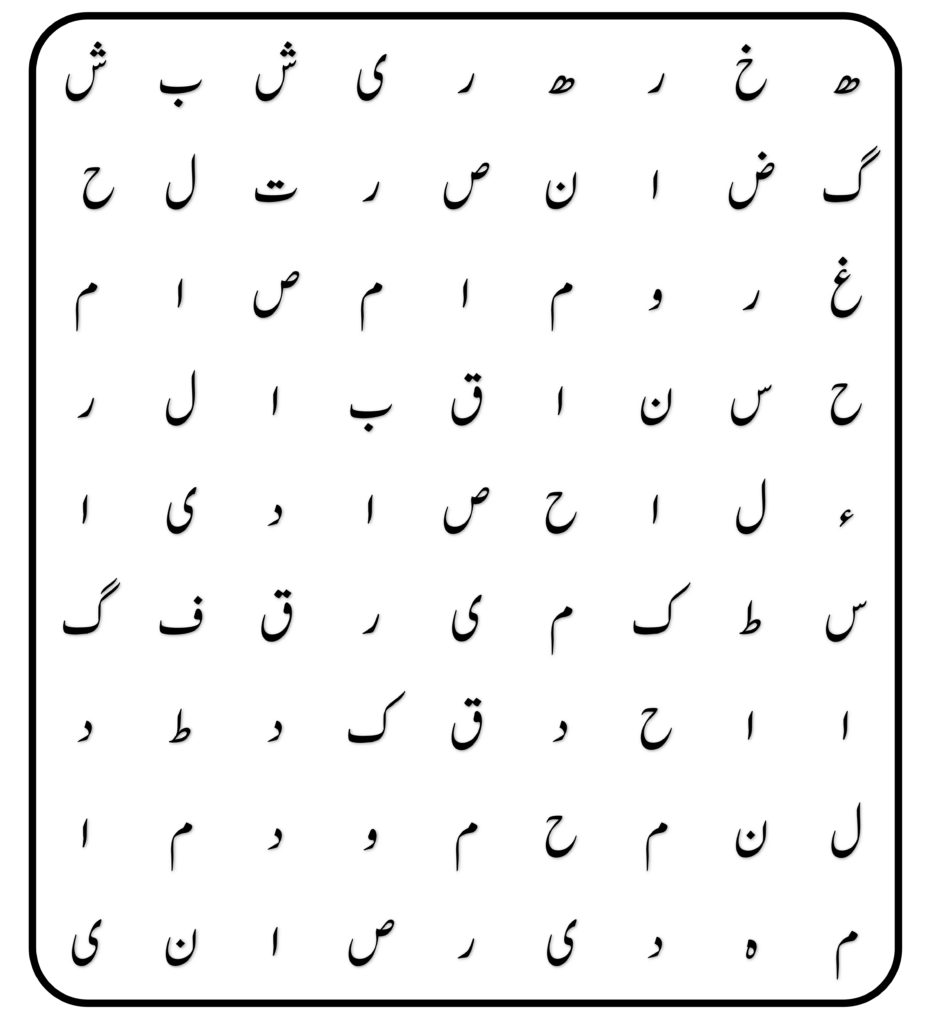 ھ خ ر ھ ر ی ش ب ش
گ ض ا ن ص ر ت ل ح
غ ر و م ا م ص ا م
ح س ن ا ق ب ا ل ر
ء ل ا ح ص ا د ی ا
س ط ک م ی ر ق ف گ
ا ا ح د ق ک د ط د
ل ن م ح م و د م ا
م ہ د ی ر ص ا ن ی